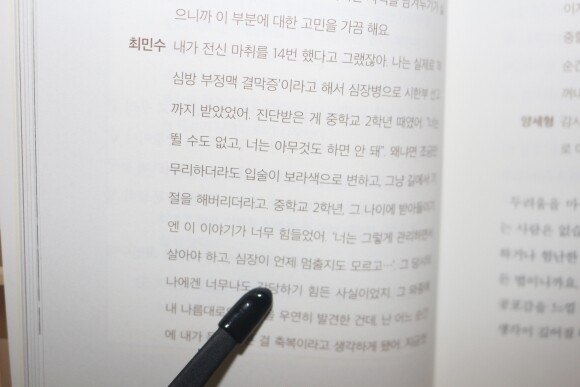 으니까 이 부분에 대한 고민을 가끔 해요.
최민수 내가 전신 마취를 14번 했다고 그랬잖아. 나는 실제로
심방 부정맥 결막증'이라고 해서 심장병으로 시한부 선고
까지 받았었어. 진단받은 게 중학교 2학년 때였어. "너는
뛸 수도 없고, 너는 아무것도 하면 안 돼". 왜냐면 조금만
무리하더라도 입술이 보라색으로 변하고, 그냥 길에서
절을 해버리더라고. 중학교 2학년, 그 나이에 받아들이기
엔 이 이야기가 너무 힘들었어. '너는 그렇게 관리하면서
살아야 하고, 심장이 언제 멈출지도 모르고…'. 그 당시의
나에겐 너무나도 감당하기 힘든 사실이었지. 그 와중에
내 나름대로 우연히 발견한 건데, 난 어느 순간
에 내가 걸 축복이라고 생각하게 됐어. 지금껏
양세형
로
두려움을
는 사람은 없습
하거나 험난한
는 법이니까요.
공포감을 느낄
생각이 깊어질